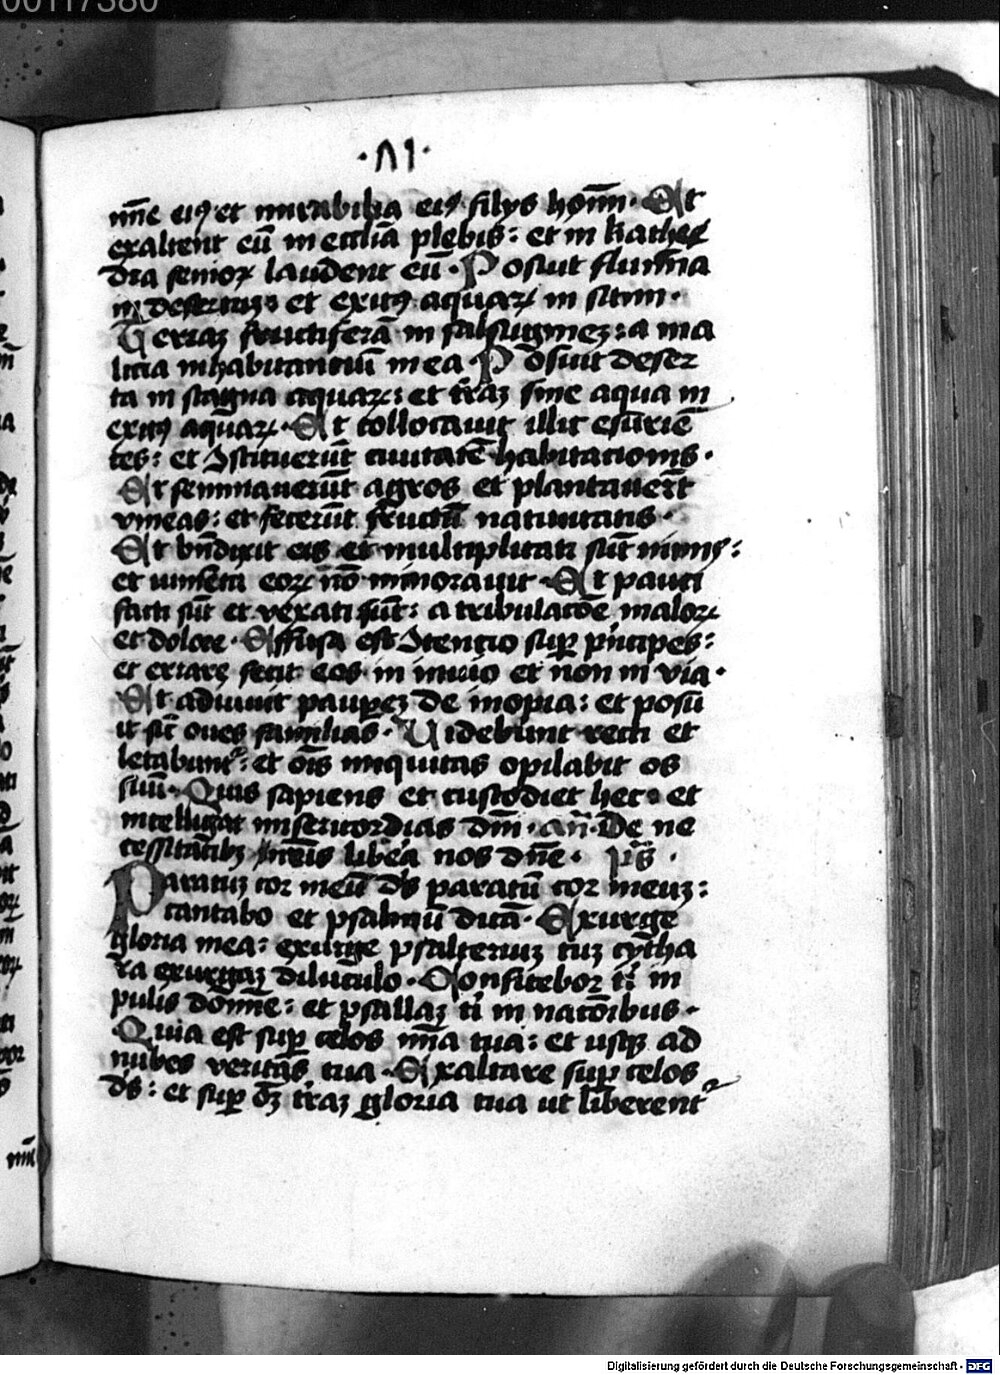 00117380
·Λ1·
mie eiꝰ et mirabilia eiꝰ filys hom̄· Et
exaltent eū in eccliā plebis: et in kathe
dra senioꝝ laudent eū · Posuit flumīa
in desertuꝫ: et exitꝰ aquaꝝ in sitim ·
Terraꝫ fructiferā in salsugineꝫ: a ma
licia inhabitantiū in ea · Posuit deser
ta in stagna aquaꝝ: et t̄raꝫ sine aqua in
exitꝰ aquaꝝ · Et collocauit illic esuriē
tes: et ꝯstituerūt ciuitatē habitacionis ·
Et seminauerūt agros et plantauer̄t
vineas: et fecerūt fructū natiuitatis ·
Et bn̄dixit eis et multiplicati sūt nimis:
et iumēta eoꝝ nō minorauit · Et pauci
facti sūt et vexati sūt: a tribulacōe maloꝝ
et dolore · Effusa est ꝯtencio suꝑ pͥncipes:
et errare fecit eos in inuio et non in via ·
Et adiuuit paupeꝫ de inopia: et posu
it sic̄ oues familias · Uidebunt recti et
letabunt᷑: et ōis iniquitas opilabit os
suū · Quis sapiens et custodiet hec: et
intelligat misericordias dn̄i · an̄ · De ne
cessitatibꝫ meis libera nos dn̄e · p̄s ·
Paratuꝫ cor meū ds̄ paratū cor meuꝫ:
cantabo et psalmū dicā · Exurge
gloria mea: exurge psalteriuꝫ et cytha
ra exurgaꝫ diluculo · Confitebor ti᷑ in
pulis domīe: et psallaꝫ ti᷑ in natōibus ·
Quia est suꝑ celos mīa tua: et usqꝫ ad
nubes veritas tua · Exaltare suꝑ celos
ds̄: et suꝑ oēꝫ t̄raꝫ gloria tua ut liberent᷑
Digitalisierung gefördert durch die Deutsche Forschungsgemeinschaft - DFG